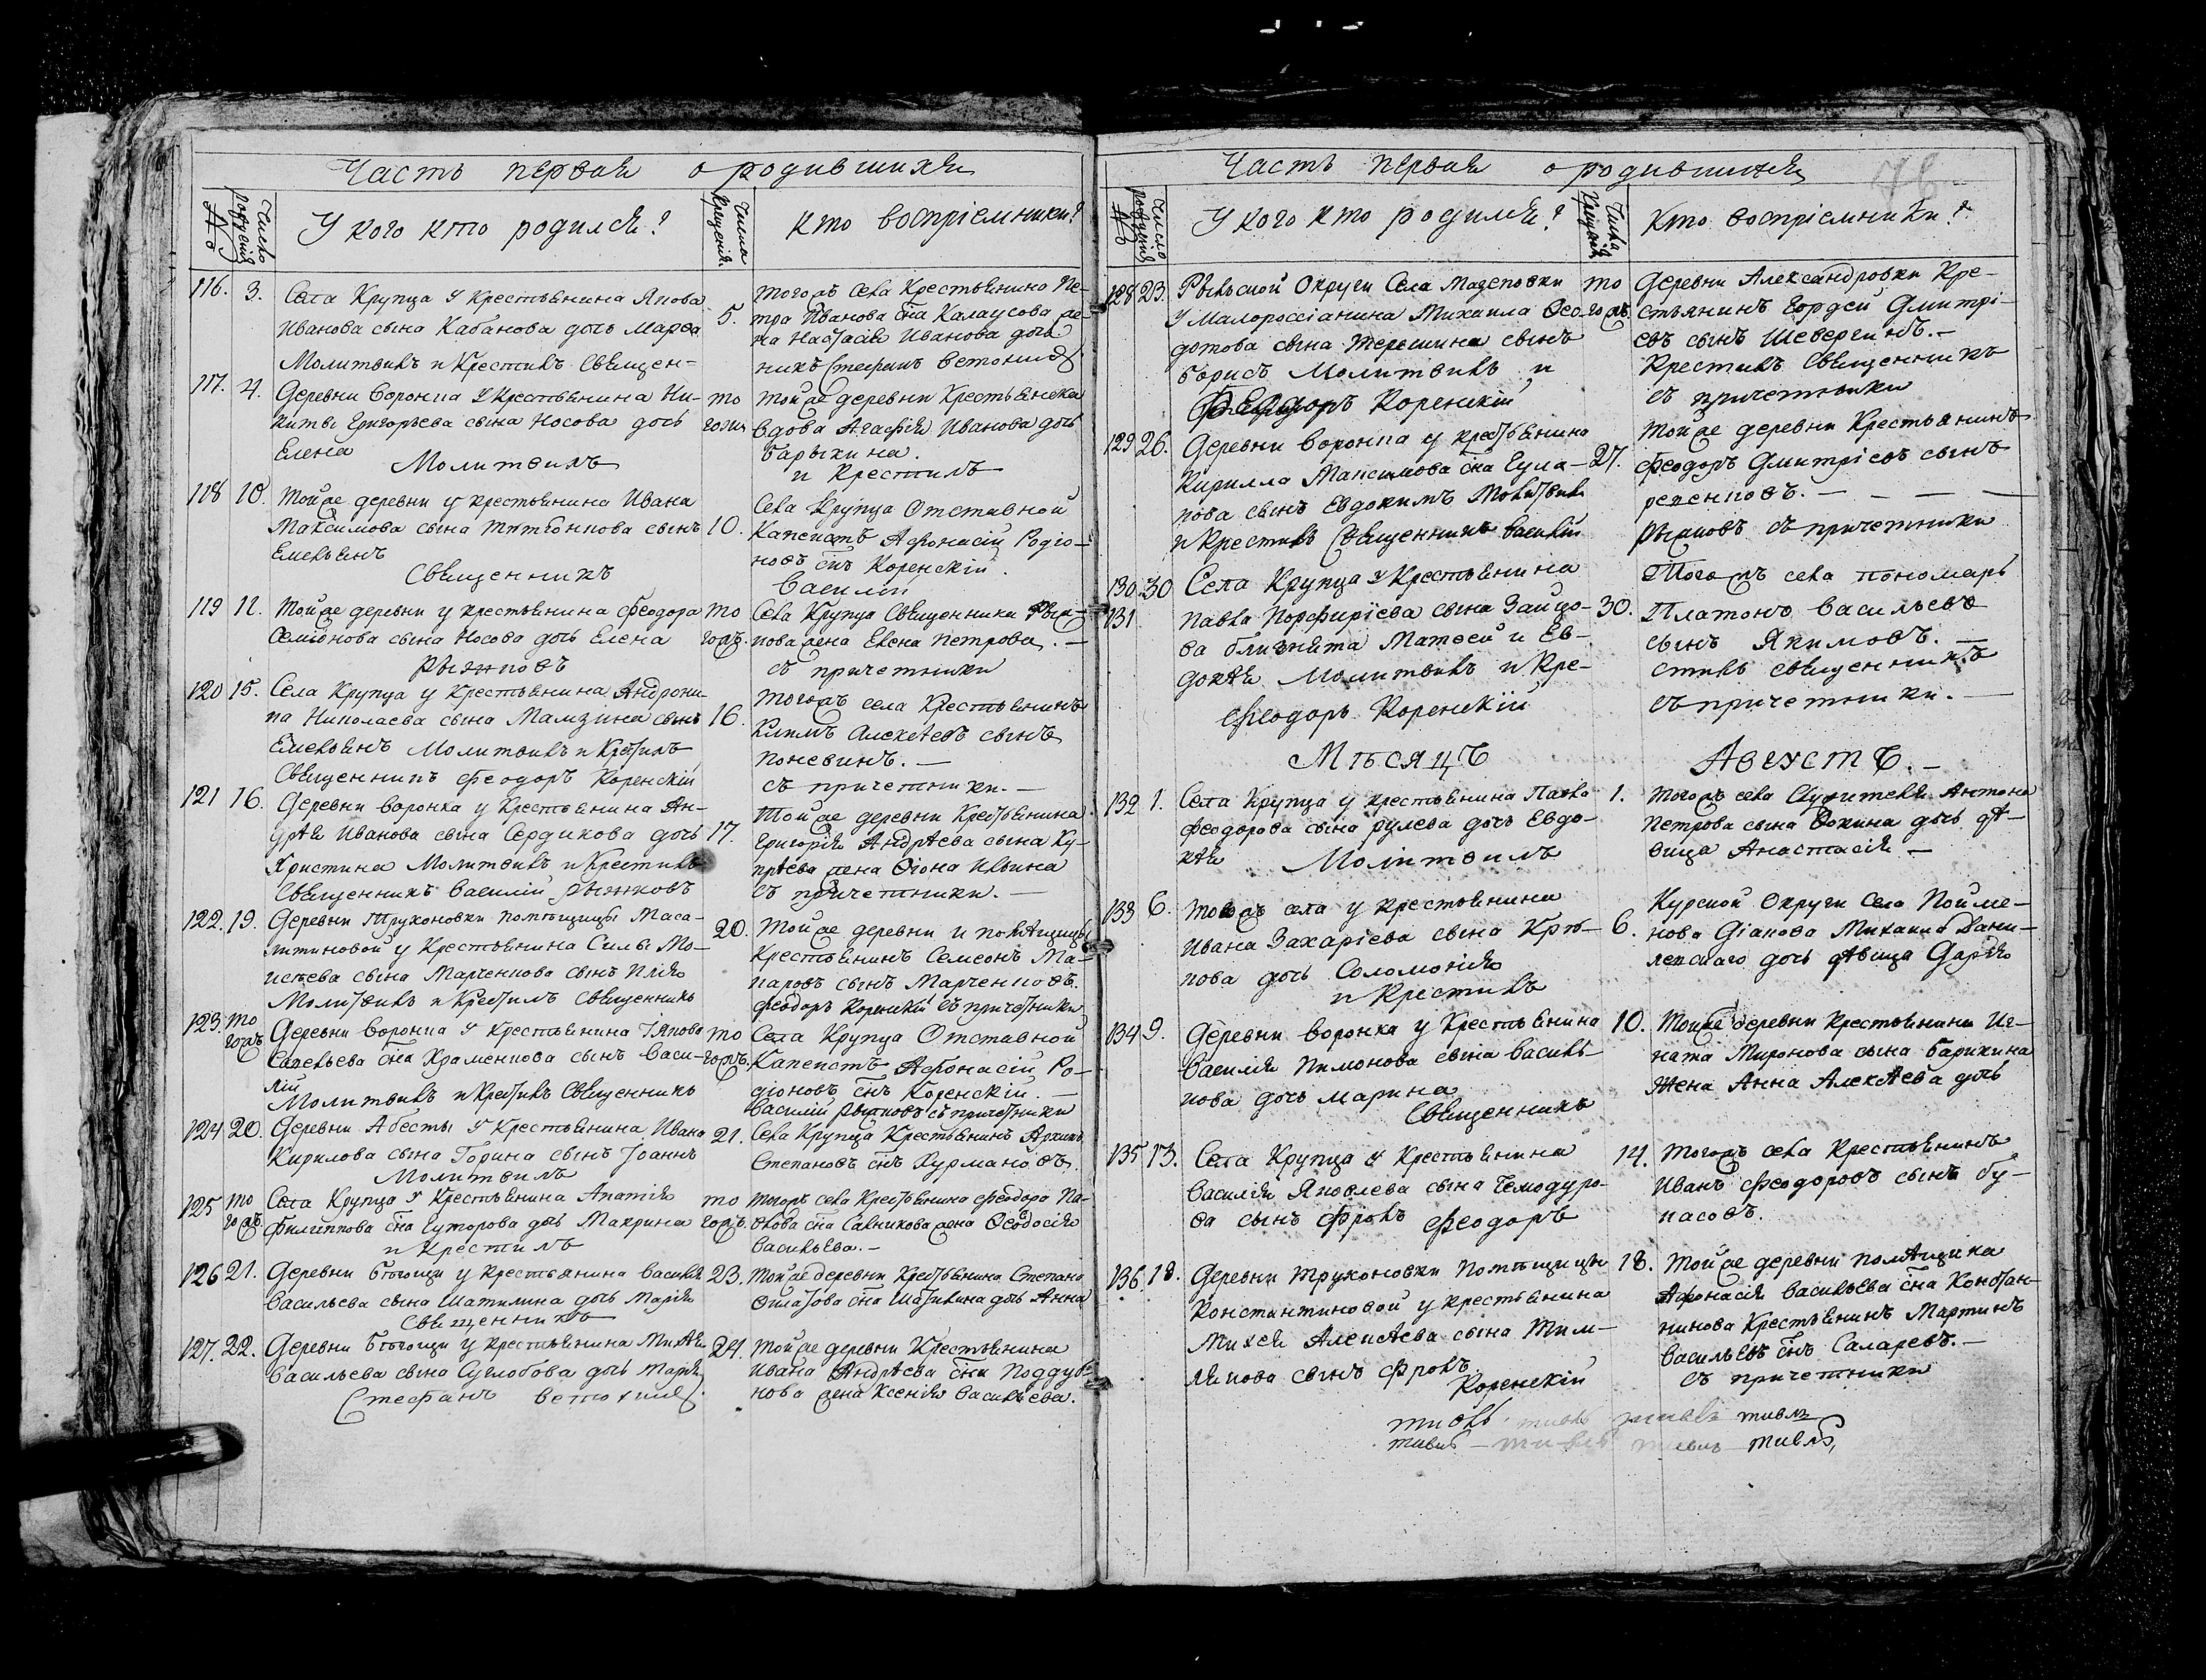 Часть первая о родившихся
№ Число рождения У кого кто родился? Числа крещения. Кто воспріемники?
116. 3. Села Крупца у крестьянина Якова
Иванова сына Кабанова дочь Марѳа
Молитвилъ и крестилъ Священ-
5. тогожъ села крестьянина Пе-
тра Иванова сна Калаусова же-
на Настасія Иванова дочь
никъ Стефанъ Ветошие
117. 4. Деревни Воронка у крестьянина Ни-
киты Григорьева сына Носова дочь
Елена
Молитвилъ
то
гожъ тойже деревни крестьянска
вдова Агафія Иванова дочь
Барыкина.
и крестилъ
118 10. Тойже деревни у крестьянина Ивана
Максимова сына сынъ
Емельянъ
Священникъ
10. Села Крупца отставной
капеистъ Афонасій Родіо-
новъ снъ Коренскій.
Василій
119 11. Тойже деревни у крестьянина Феодора
Семіонова сына Носова дочь Елена
Рыжковъ
то
гожъ. Села Крупца Священника Рыж-
кова жена Елена Петрова. —
съ причетники
120 15. Села Крупца у крестьянина Андрони-
ка Николаева сына Мамзина сынъ
Емельянъ Молитвилъ и крестилъ
Священникъ Феодоръ Коренскій
16. тогожъ села крестьянинъ
Климъ Алексѣевъ сынъ
Поневинъ. —
съ причетники. —
121 16. Деревни Воронка у крестьянина Ан-
дрѣя Иванова сына Сердикова дочь
Христина Молитвилъ и крестилъ
Священникъ Василій Рыжковъ
17. Тойже деревни крестьянина
Григорія Андрѣева сына Ку-
прѣева жена Ѳіона Ильина
съ причетники. —
122. 19. Деревни Трухоновки помѣщицы Маса-
литиновой у крестьянина Силы Мо-
исѣева сына Марченкова сынъ Илія
Молитвилъ и крестилъ Священникъ
20. Тойже деревни и помѣщицы
крестьянинъ Семеонъ Ма-
каровъ сынъ Марченковъ.
Феодоръ Коренскій съ причетники
123. то
гожъ Деревни Воронка у крестьянина Іякова
Савельева сна Краменкова сынъ Васи-
лій
Молитвилъ и крестилъ Священникъ
то
гожъ. Села Крупца Отставной
Капеистъ Афонасій Ро-
діоновъ снъ Коренскій. —
Василій Рыжковъ съ причетники
124 20. Деревни Абесты у крестьянина Ивана
Кирилова сына Горина сынъ Іоаннъ
Молитвилъ
21. Села Крупца крестьянинъ Архипъ
Степановъ снъ Курмановъ.
125 то
гожъ. Села Крупца у крестьянина Ипатія
Филиппова сна Гуторова дочь Макрина
и крестилъ
то
гожъ. тогожъ села крестьянина Феодора Па-
влова сна Савникова жена Ѳеодосія
Васильева. —
126 21. Деревни Бтогощи у крестьянина Василія
Васильева сына Шатилина дочь Марія
Священникъ
23. Тойже деревни крестьянина Степана
сна Шатилина дочь Анна
127. 22. Деревни Бтогощи у крестьянина Михѣя
Васильева сына Суглобова дочь Марія
Стефанъ Ветошие
24. Тойже деревни крестьянина
Ивана Андрѣева сна Поддуб-
нова жена Ксенія Васильева.
Часть первая о родившихся 76
№ Число рождения У кого кто родился? Числа крещения Кто воспріемники?
128 23. Рыльской Округи Села Мазеповки
у Малороссіанина Михаила Ѳео-
дотова сына Терешина сынъ
Борисъ Молитвилъ и
Феодоръ Коренскій
то
гожъ. Деревни Александровки кре-
стьянинъ Гордей Дмитрі-
евъ сынъ Шевергинъ. —
крестилъ Священникъ
съ причетники
129 26. Деревни Воронка у крестьянина
Кирилла Максимова сна Гула-
кова сынъ Евдокимъ Молитвилъ
и крестилъ Священникъ Василій
27. Тойже деревни крестьянинъ
Феодоръ Дмитріевъ сынъ
репенковъ. — — — —
Рыжковъ съ причетники
130. 30
131 Села Крупца у крестьянина
Павла Порфиріева сына Зайцо-
ва близнята Матѳей и Ев-
докѣя Молитвилъ и кре-
Феодоръ Коренскій
30. Тогожъ села пономарь
Платонъ Васильевъ
сынъ Якимовъ. —
стилъ священникъ
съ причетники. —
Мѣсяцъ Августъ. —
132 1. Села Крупца у крестьянина Павла
Феодорова сына Рулева дочь Евдо-
кѣя Молитвилъ
1. Тогожъ села Служителя Антона
Петрова сына Фокина дочь дѣ-
вица Анастасія —
133 6. тогожъ села у крестьянина
Ивана Захаріева сына Крю-
кова дочь Соломонія
и крестилъ
6. Курской Округи Села Пойме-
нова Діакова Михаила Дани-
левскаго дочь дѣвица Дарія
134 9. Деревни Воронка у крестьянина
Василія Пимонова сына Василь-
кова дочь Марина
Священникъ
10. Тойже деревни крестьянина Иг-
ната Миронова сына Барикина
Жена Анна Алексѣева дочь
135 13. Села Крупца у крестьянина
Василія Яковлева сына Чемодуро-
ва сынъ Фролъ Феодоръ
14. Тогожъ села крестьянинъ
Иванъ Феодоровъ сынъ Бу-
насовъ.
136. 18. Деревни Трухоновки Помѣщицы
Константиновой у крестьянина
Михея Алексѣева сына Тим-
лякова сынъ Фролъ.
Коренскій
18. Тойже деревни помѣщика
Афонасія Васильева сна Констан-
тинова крестьянинъ Мартинъ
Васильевъ снъ Саларевъ. —
съ причетники